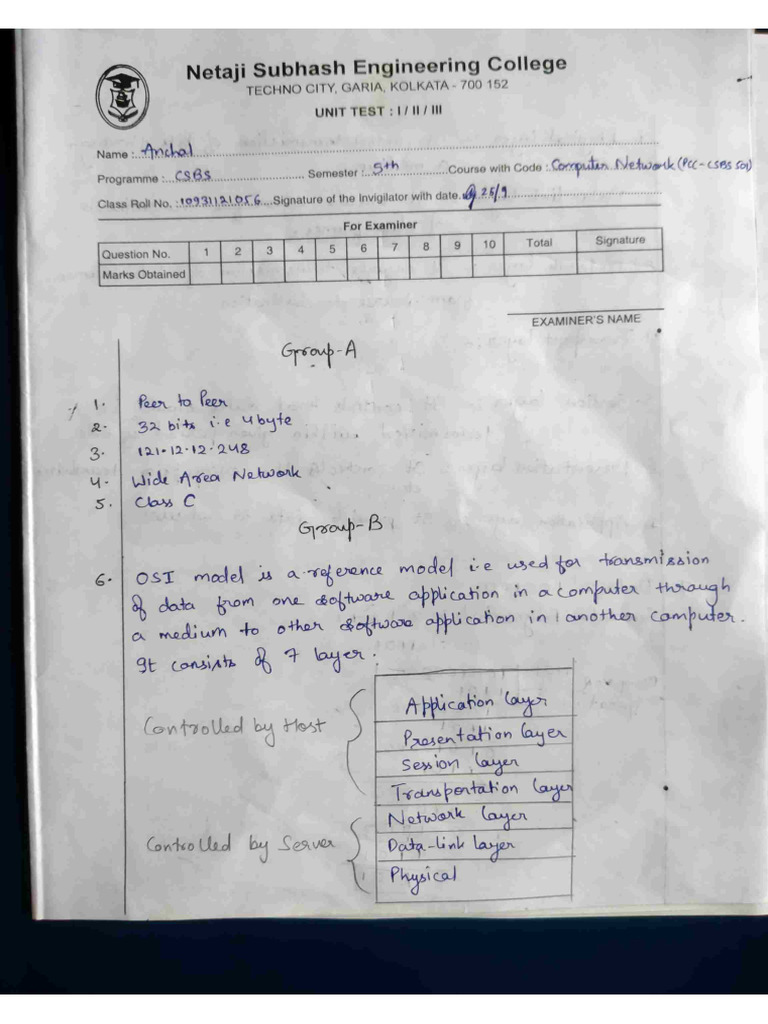 Netaji Subhash Engineering College
TECHNO CITY, GARIA, KOLKATA - 700 152
UNIT TEST : I / II / III
Name : Anchal
Programme : CSBS Semester : 5th Course with Code : Computer Network (PCC-CSBS 501)
Class Roll No. : 10931121056 Signature of the Invigilator with date 25/9
For Examiner
Question No. 1 2 3 4 5 6 7 8 9 10 Total Signature
Marks Obtained
EXAMINER'S NAME
Group-A
1. Peer to Peer
2. 32 bits i.e 4byte
3. 121.12.12.248
4. Wide Area Network
5. Class C
Group-B
6. OSI model is a reference model i.e used for transmission
of data from one software application in a computer through
a medium to other software application in another computer.
It consists of 7 layer.
Application layer
Controlled by Host
Presentation layer
Session layer
Transportation layer
Network layer
Controlled by Server
Data-link layer
Physical